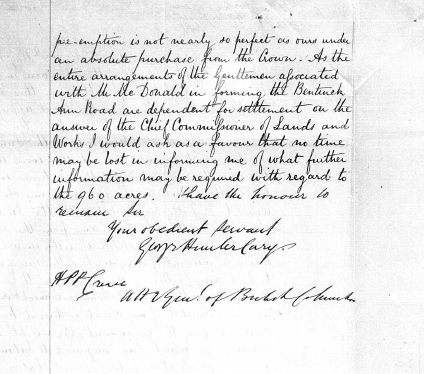 pre-emption is not nearly so perfect as ours under
an absolute purchase from the Crown. As the
entire arrangements of the Gentlemen associated
with Mr McDonald in forming the Bentinck
Arm Road are dependent for settlement on the
answer of the Chief Commissioner of Lands and
Works I would ask as a favour that no time
may be lost in informing me of what further
information may be required with regard to
the 960 acres. I have the honour to
remain Sir
Your obedient servant
George Hunter Cary
HPP Crease
Att Genl. of British Columbia